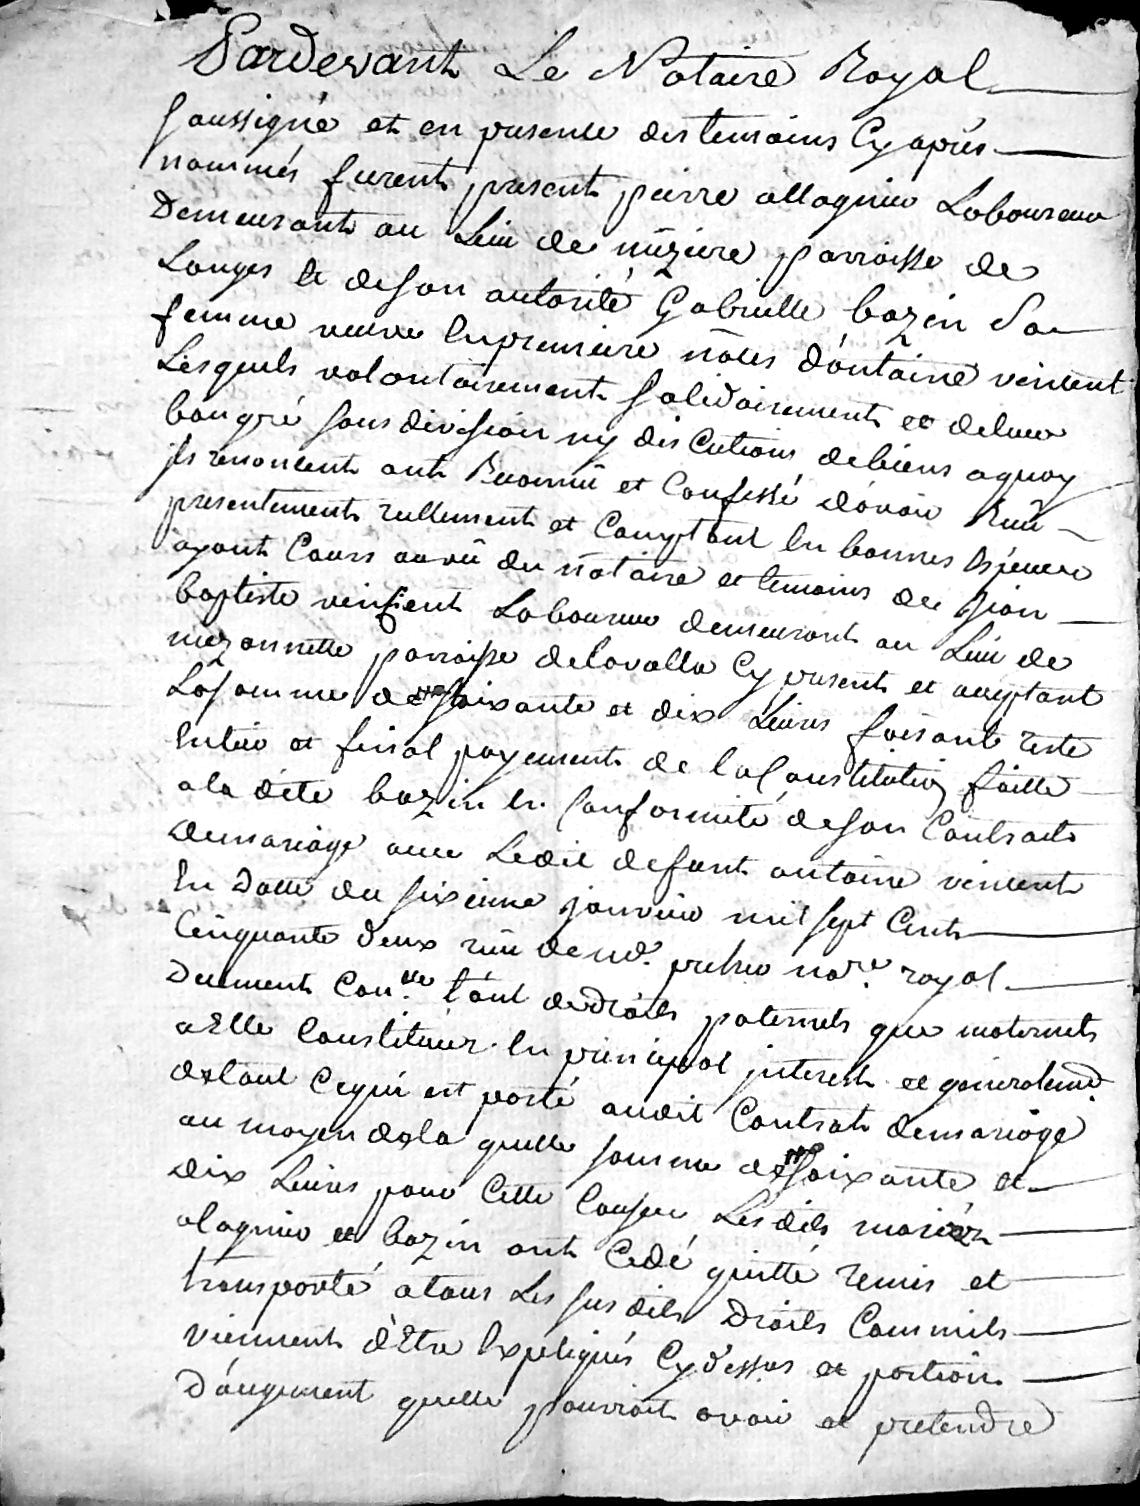 Pardevant Le Notaire Royal
soussigné et en presence des temoins Cy aprés
nommés furent present pierre allagnier Laboureur
Demeurant au Lieu de miziere parroisse de
Longes et de son autorité Gabrielle bazin Sa
femme veuve En premiere nôces d'antoine vincent
Lesquels volontairement solidairement et de leur
bon gré sans division ny discutions de biens a quoy
ils renoncent ont Reconnü et Confessé d'avoir Reçû
presentement reellement et Comptant En bonnes Espèces
ayant Cours au vû du nôtaire et temoins de Jean
baptiste vincent Laboureur demeurant au Lieu de
mezonnette parroisse de lavalla Cy present et acceptant
La somme de soixante et dix Livres faisant reste
Entier et final payement de la Constitution faitte
a la dite bazin En Conformité de son Contrat
de mariage avec Ledit defunt antoine vincent
En Datte du sixieme janvier mil sept Cents
Cinquante deux reçû de me. prelier nore. royal
Duement Conlle. tant de droits paternels que maternels
a Elle Constituéz En principal interest et generalemt.
de tout Ce qui est porté audit Contrat de mariage
au moyen de la quelle somme de soixante et
dix Livres pour Cette Cause Les dits mariéz
alagnier et bazin ont Cedé quitté remis et
transporté a tous Les susdits Droits Comm'ils
viennent d'Etre Expliqués Cy dessus et portion
D'augment quelle pourroit avoir et pretendre